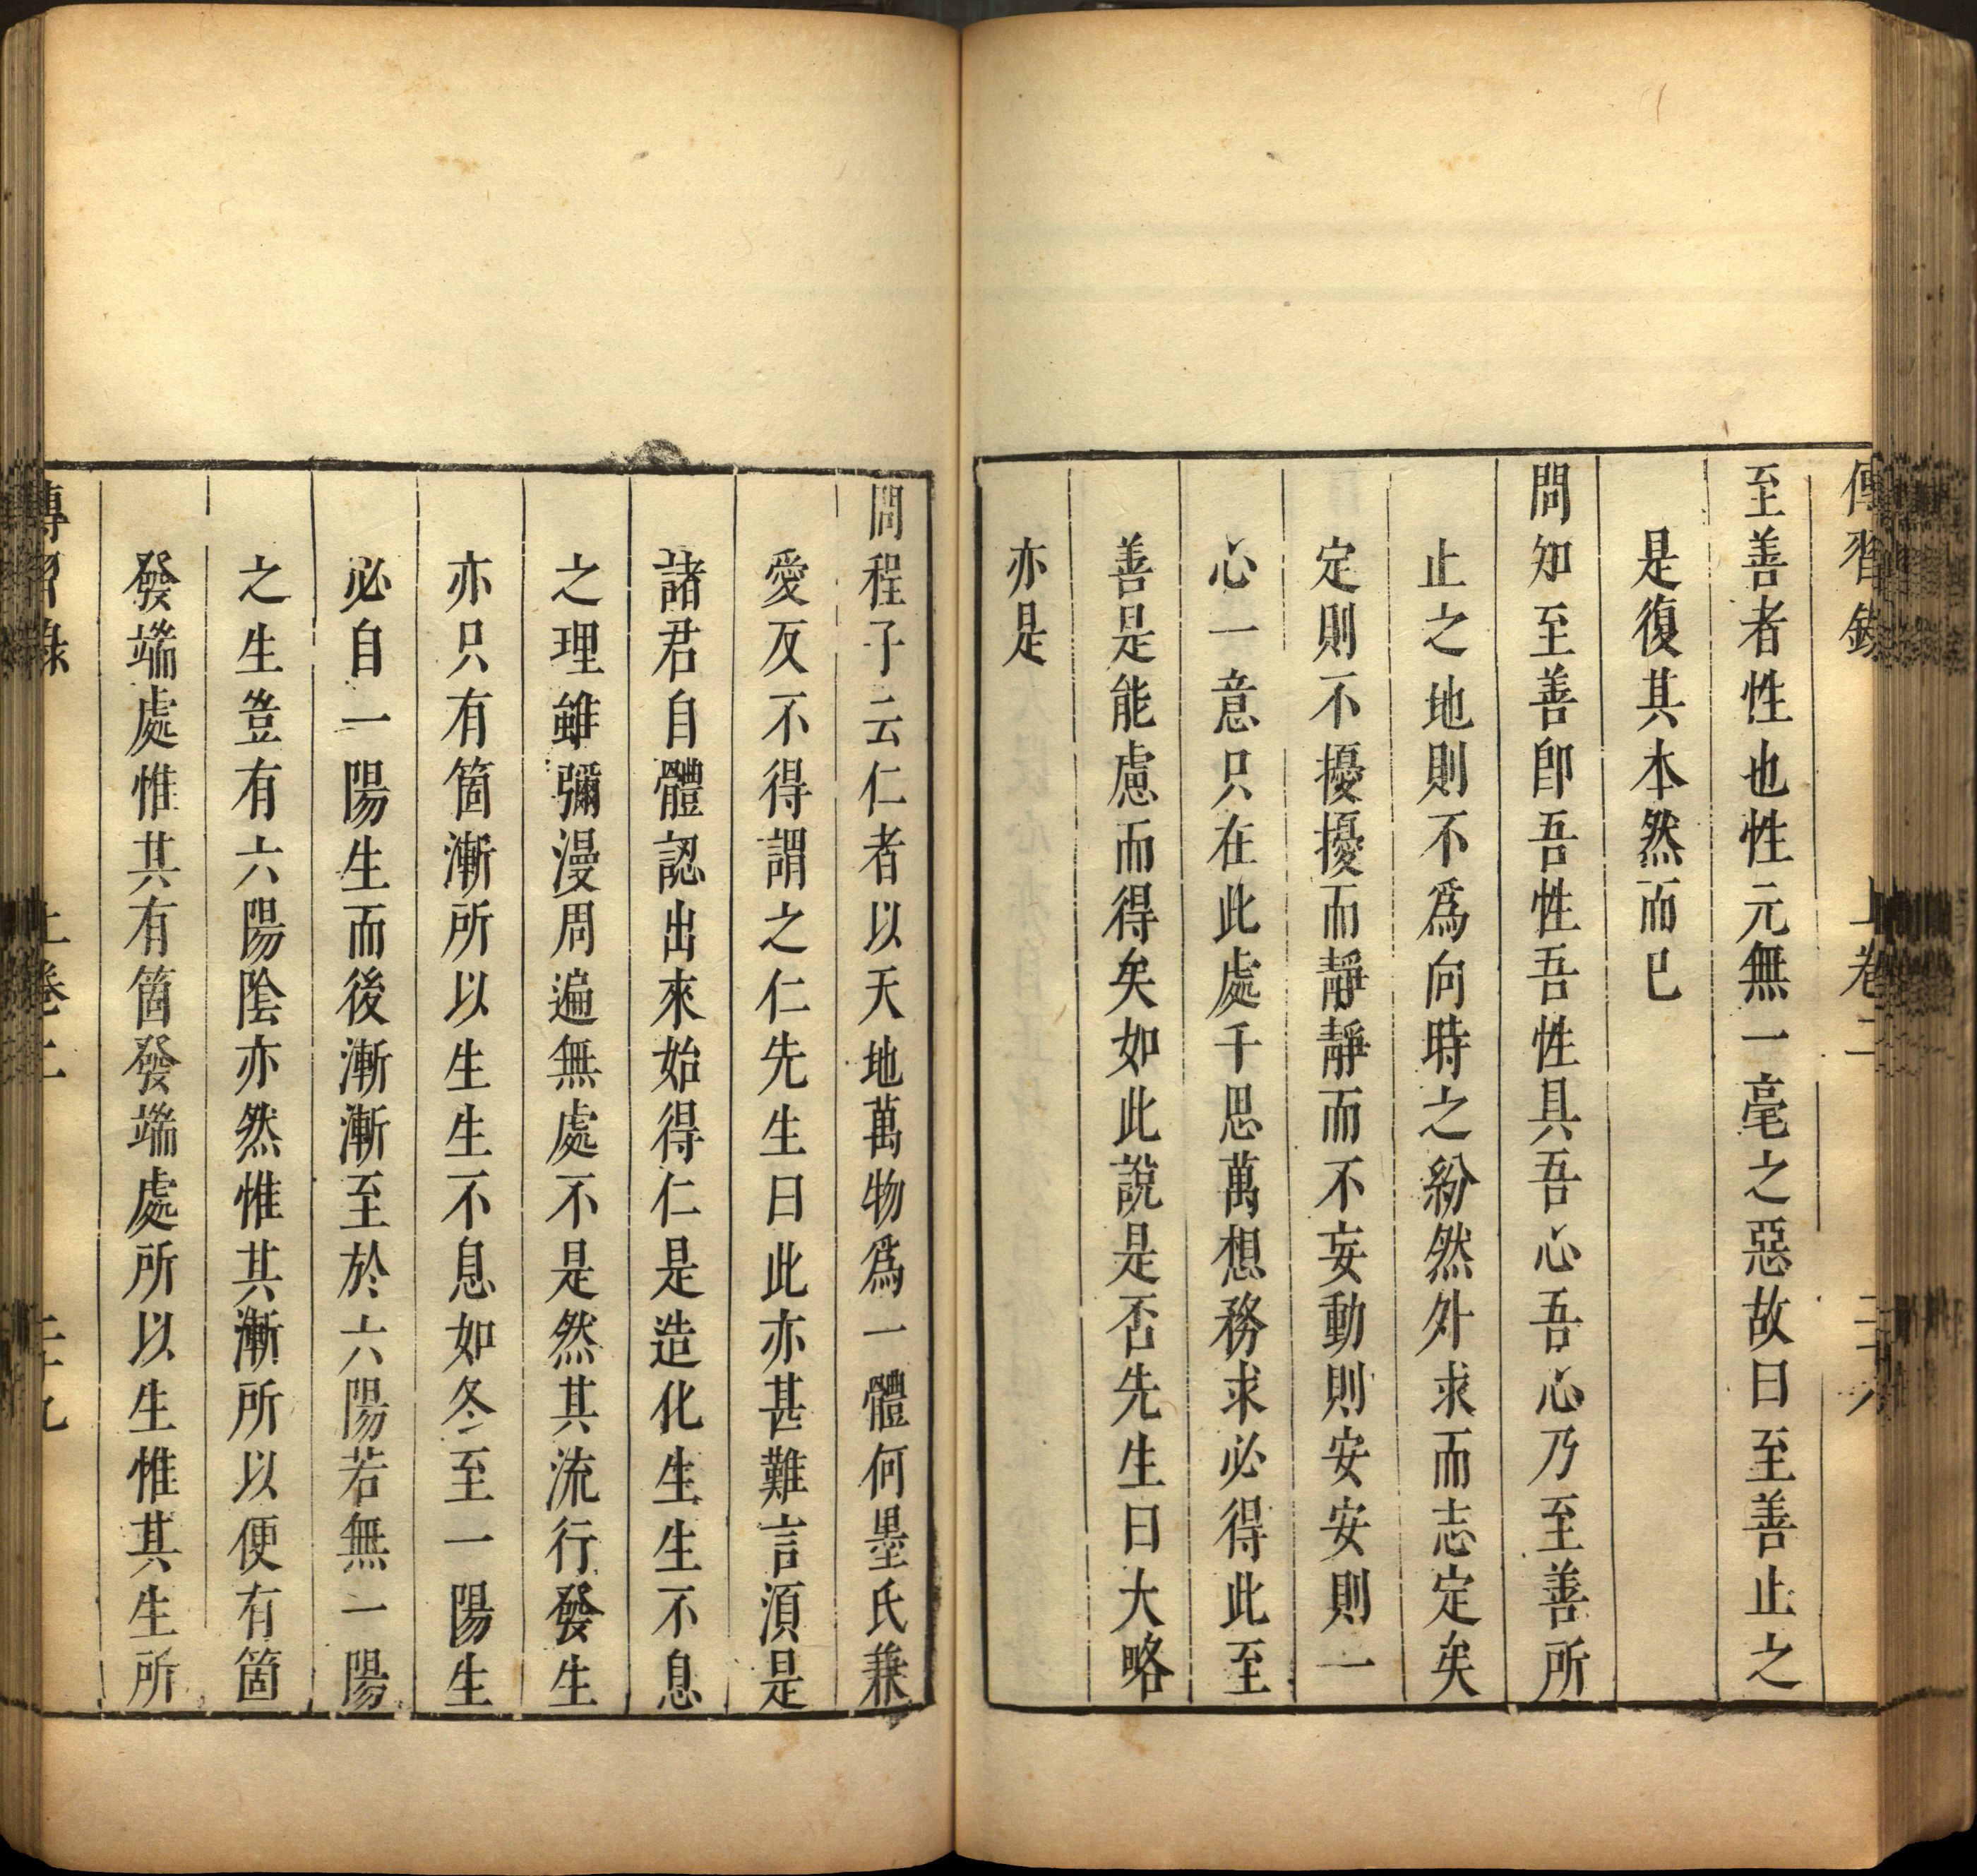 傳習錄 上卷二 二十八
至善者性也性元無一毫之惡故曰至善止之
是復其本然而已
問知至善卽吾性吾性具吾心吾心乃至善所
止之地則不爲向時之紛然外求而志定矣
定則不擾擾而靜靜而不妄動則安安則一
心一意只在此處千思萬想務求必得此至
善是能慮而得矣如此說是否先生曰大略
亦是
問程子云仁者以天地萬物爲一體何墨氏兼
愛反不得謂之仁先生曰此亦甚難言須是
諸君自體認出來始得仁是造化生生不息
之理雖彌漫周遍無處不是然其流行發生
亦只有箇漸所以生生不息如冬至一陽生
必自一陽生而後漸漸至於六陽若無一陽
之生豈有六陽陰亦然惟其漸所以便有箇
發端處惟其有箇發端處所以生惟其生所
傳習錄 上卷二 二十九